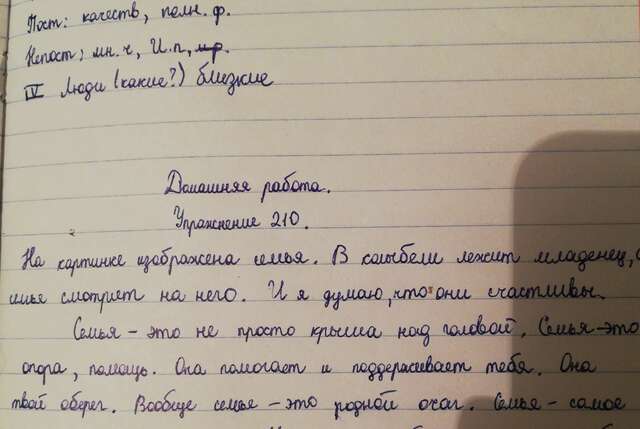 Пост: качеств, полн. ф.
Непост: мн. ч, И.п, м.р.
IV Люди (какие?) близкие
Домашняя работа.
Упражнение 210.
На картинке изображена семья. В колыбели лежит младенец, а
семья смотрит на него. И я думаю, что они счастливы.
Семья - это не просто крыша над головой. Семья - это
опора, помощь. Она помогает и поддерживает тебя. Она
твой оберег. Вообще семья - это родной очаг. Семья - самое